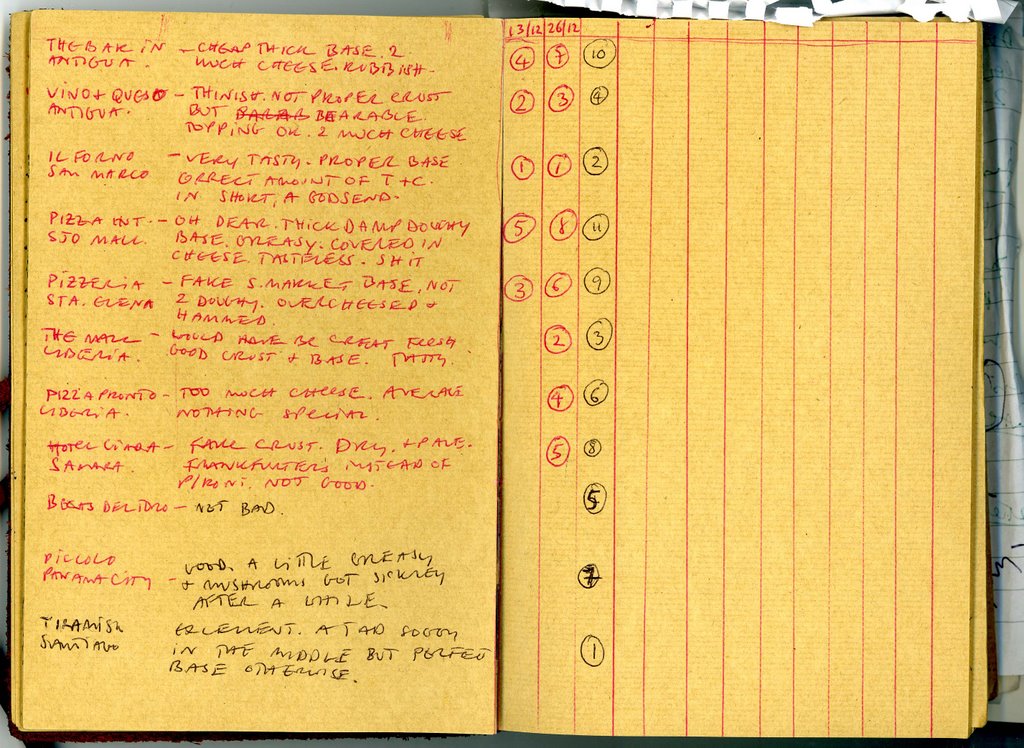 13/12 26/12
THE BAR IN — CHEAP THICK BASE. 2 4 7 10
ANTIGUA. MUCH CHEESE. RUBBISH.
VINO + QUESO — THINISH. NOT PROPER CRUST 2 3 4
ANTIGUA. BUT BEARABLE.
TOPPING OK. 2 MUCH CHEESE
IL FORNO — VERY TASTY. PROPER BASE 1 1 2
SAN MARCO CORRECT AMOUNT OF T+C.
IN SHORT, A GODSEND.
PIZZA INT. — OH DEAR. THICK DAMP DOUGHY 5 8 11
SJO MALL. BASE. GREASY. COVERED IN
CHEESE. TASTELESS. SHIT
PIZZERIA — FAKE S.MARKET BASE, NOT 3 6 9
STA. ELENA 2 DOUGHY. OVERCHEESED +
HAMMED.
THE MALL — WOULD HAVE BE GREAT FRESH 2 3
LIBERIA. GOOD CRUST + BASE. TASTY.
PIZZA PRONTO — TOO MUCH CHEESE. AVERAGE 4 6
LIBERIA. NOTHING SPECIAL.
HOTEL — FAKE CRUST. DRY, + PALE. 5 8
SAMARA. FRANKFURTERS INSTEAD OF
P/RONI. NOT GOOD.
BOCAS DEL TORO — NOT BAD. 5
PICCOLO GOOD. A LITTLE GREASY
PANAMA CITY — + MUSHROOMS GOT SICKLEY 7
AFTER A WHILE.
TIRAMISU EXCELLENT. A TAD SOGGY
SANTIAGO IN THE MIDDLE BUT PERFECT 1
BASE OTHERWISE.